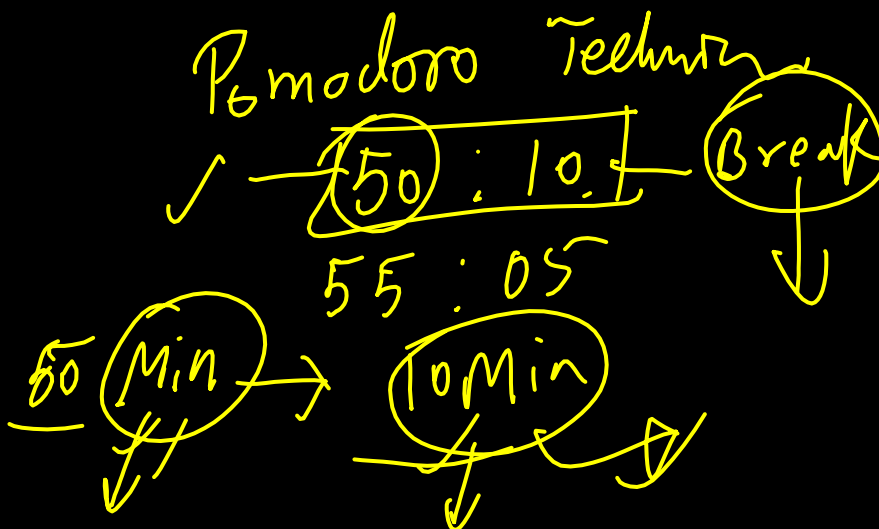 Pomodoro Technic
50 : 10 Break
55 : 05
50 Min → 10 Min